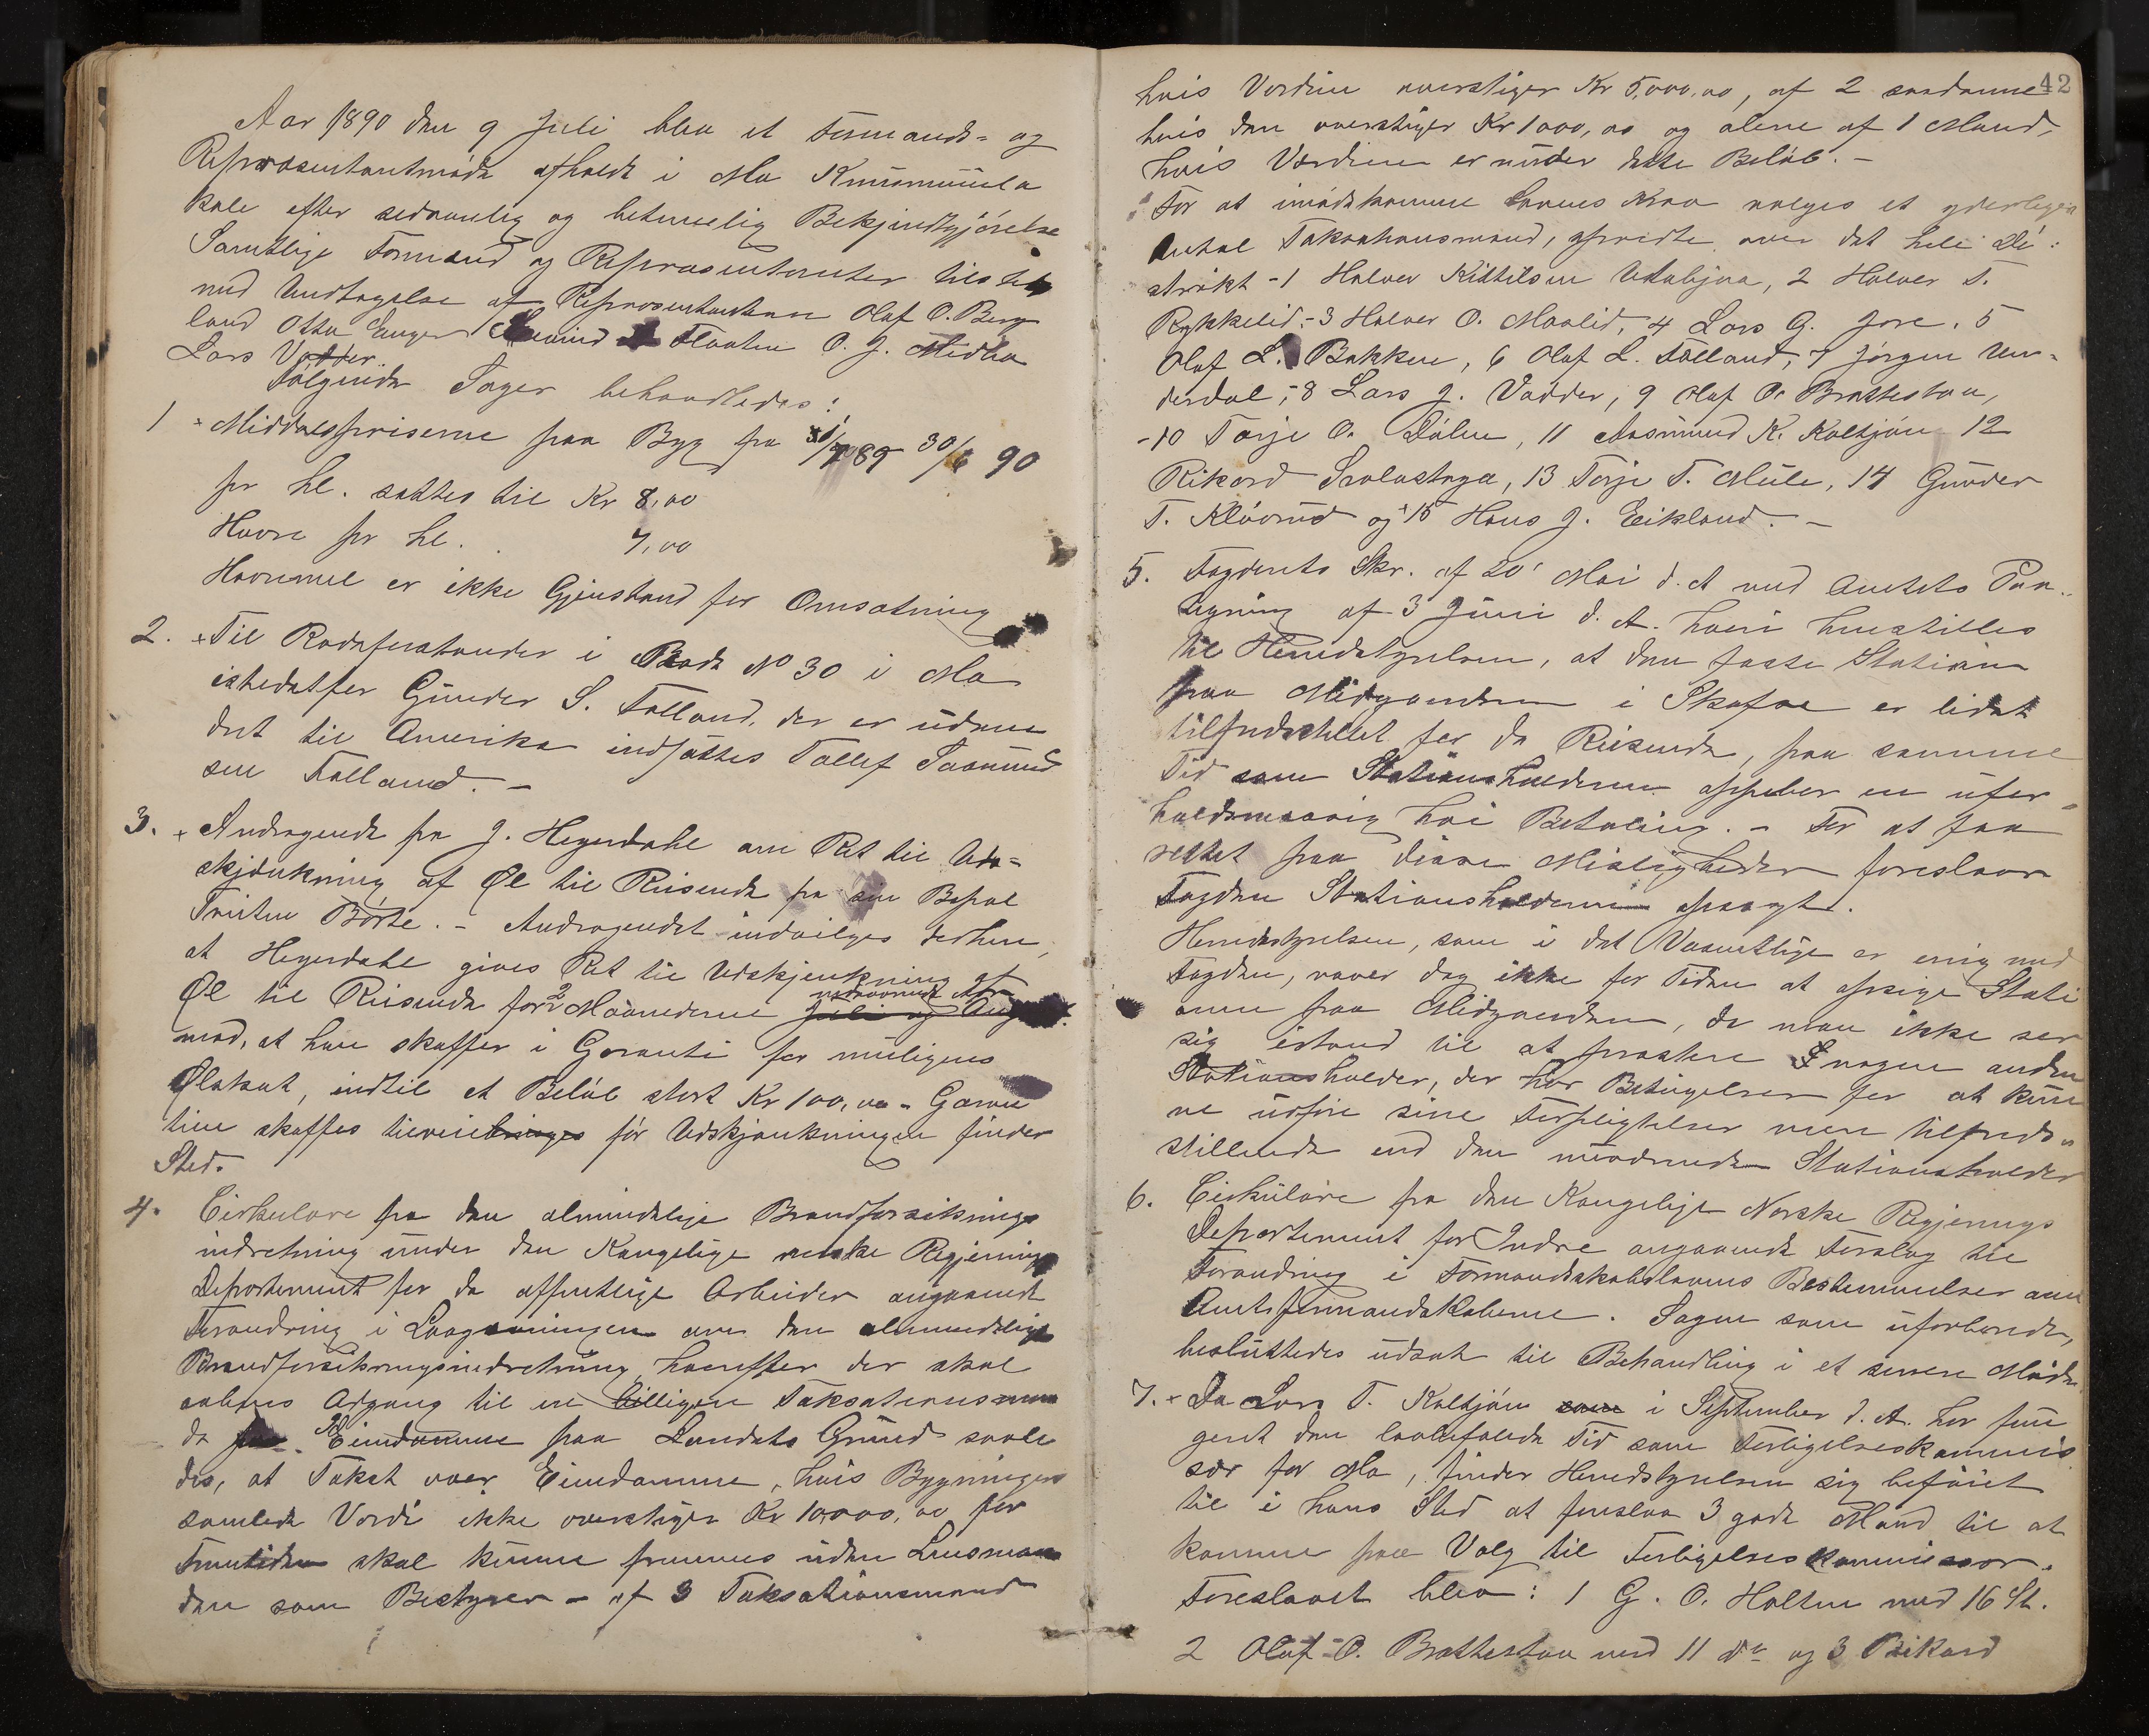 Aar 1890 den 9 Juli blev et Formands- og
Repræsentantmøde afholdt i Mo Kommune
lokale efter sedvanlig og betimelig Bekjendtgjørelse
Samtlige Formænd og Repræsentanter tilstede
med Undtagelse af Repræsentanterne Olaf O. Berg
land Otto Flaaten O. J. Midbø
Lars Vadder.
Følgende Sager behandledes:
1 Middelspriserne paa Byg fra 1/7 89 30/6 90
pr hl. sattes til Kr 8,00
Havre pr hl. . 7,00
Havremel er ikke Gjenstand for Omsætning
2. Til Rodeforstander i Rode No 30 i Mo
istedetfor Gunder S. Folland, der er udvan
dret til Amerika indsattes Tallef Aasmund
sen Folland. -
3. Andragende fra J. Heyerdahl om Ret til Uds-
skjænkning af Øl til Reisende fra sin Bopæl
Børte. - Andragendet indvilges derhen,
at Heyerdahl gives Ret til Udskjenkning af
Øl til Reisende for 2 Maanederne Juli og Aug
mod, at han skaffer i Garanti for muligens
Ølskat, indtil et Beløb stort Kr 100,00 - Garan
tien skaffes tilveiebringes før Udskjænkningen finder
Sted.
4. Cirkulære fra den almindelige Brandforsikrings
indretning under den Kongelige norske Regjerings
Departement for de offentlige Arbeider angaaende
Forandring i Lovgivningen om den almindelige
Brandforsikringsindretning, hvorefter der skal
aabnes Adgang til en billigere Taksation
de Eiendomme paa Landets Grund saale
des, at Takst over Eiendomme, hvis Bygningers
samlede Værdi ikke overstiger Kr 10,000,00 for
Fremtiden skal kunne fremmes uden Lensman
den som Bestyrer - af 3 Taksationsmænd
42
hvis Værdien overstiger Kr 5,000,00, af 2 saadanne
hvis den overstiger Kr 1000,00 og alene af 1 Mand,
hvis Værdien er under dette Beløb. -
For at imødekomme Lovens Krav vælges et yderligere
Antal Taksationsmænd, spredte over det hele Di-
strikt - 1 Halvor Kittilsen Utabjaa, 2 Halvor T.
Rykkelid, - 3 Halvor O. Moolid, 4 Lars G. Jore, 5
Olaf L. Bakken, 6 Olaf L. Folland, 7 Jørgen Un-
derdal, - 8 Lars J. Vadder, 9 Olaf O. Brattestaa,
-10 Torje O. Dølen, 11 Aasmund K. Koltjøn 12
Rikard, 13 Torje T. Mule, 14 Gunder
T. Kløvrud og 15 Hans J. Eikland. -
5. Fogdens Skr. af 20' Mai d. A med Amtets Paa-
tegning af 3 Juni d. A. hvori henstilles
til Herredstyrelsen, at den faste Station
paa Midgaarden i Skafsaa er lidet
tilfredsstillet for de Reisende, paa samme
Tid som Stationsholderen oppebær en ufor-
holdsmæssig høi Betaling. - For at faa
rettet paa disse Misligheder foreslaar
Fogden Stationsholderen opsagt.
Herredstyrelsen, som i det Væsentlige er enig med
Fogden, vover dog ikke for Tiden at opsige Stati
onen paa Midgaarden, da man ikke ser
sig istand til at præstere nogen anden
Stationsholder, der har Betingelser for at kun
ne udføre sine Forpligtelser mere tilfreds-
stillende end den nuværende Stationsholder
6. Cirkulære fra den Kongelige Norske Regjerings
Departement for Indre angaaende Forslag til
Forandring i Formandskabslovens Bestemmelser om
Amtsformandskaberne. Sagen som uforberedt,
besluttedes udsat til Behandling i et senere Møde.
7. Da Lars T. Koltjøn som i September d. A. har fun
geret den lovbefalede Tid som Forligelseskommis
sær for Mo, finder Herredstyrelsen sig beføiet
til i hans Sted at foreslaa 3 gode Mænd til at
komme paa Valg til Forligelseskommissær.
Foreslaaet blev: 1 G. O. Holten med 16 St.
2 Olaf O. Brattestaa med 11 do og 3 Rikard